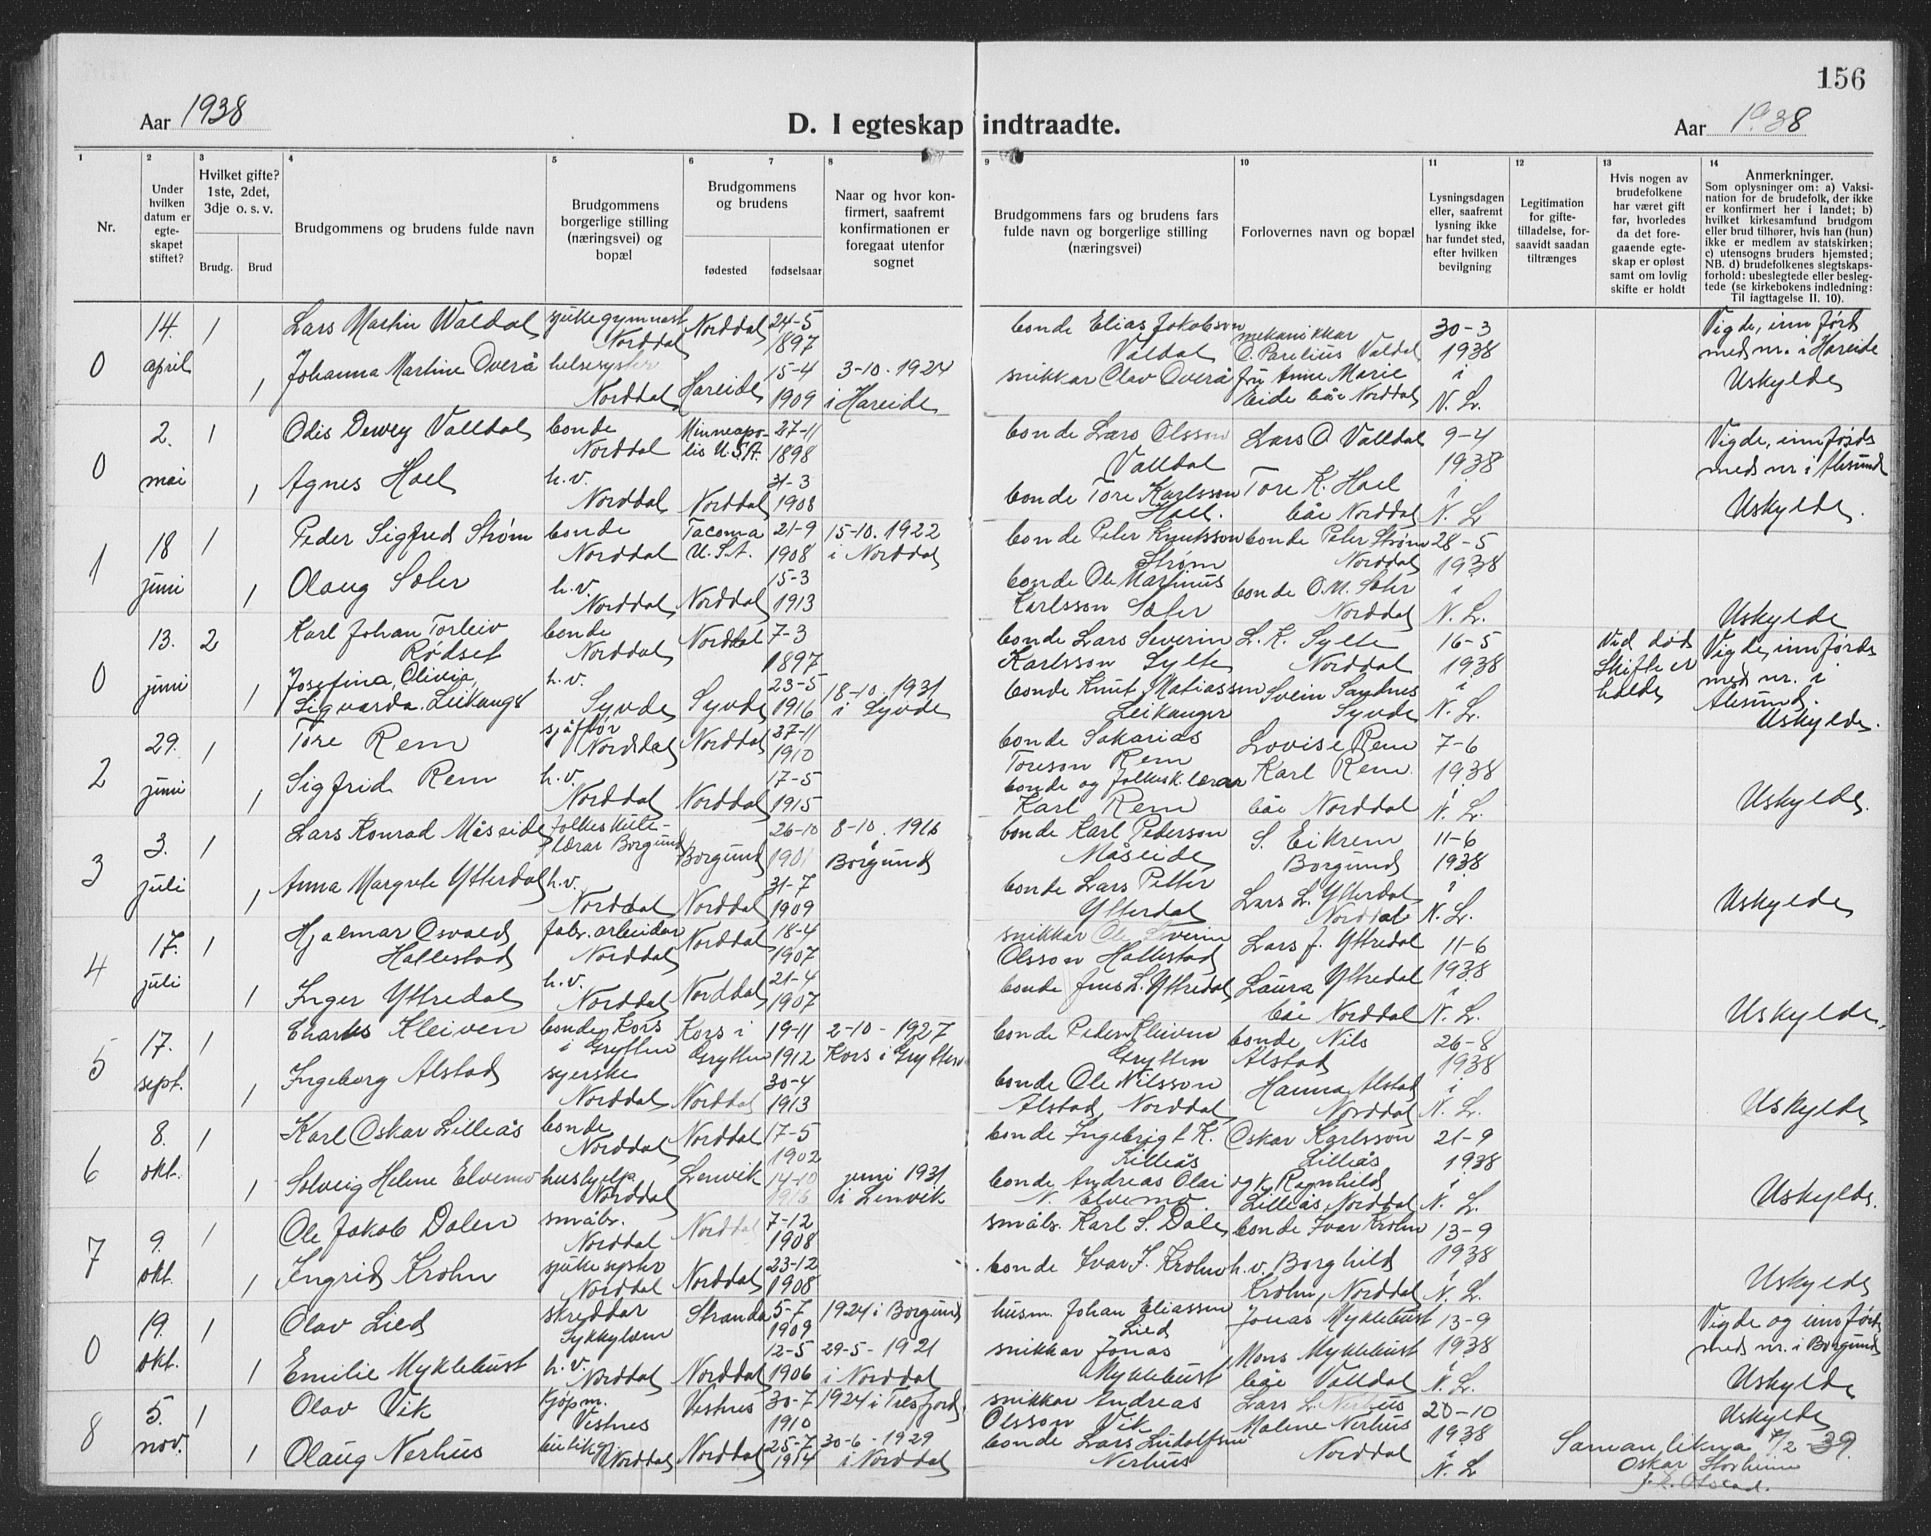 156
Aar 1938
D. I egteskap indtraadte.
Aar 1938
1 2 3 4 5 6 7 8 9 10 11 12 13 14
Nr.
Under hvilken datum er egte-skapet stiftet?
Hvilket gifte? 1ste, 2det, 3dje o. s. v.
Brudg. Brud
Brudgommens og brudens fulde navn
Brudgommens borgerlige stilling (næringsvei) og bopæl
Brudgommens og brudens
fødested fødselsaar
Naar og hvor kon-firmert, saafremt konfirmationen er foregaat utenfor sognet
Brudgommens fars og brudens fars fulde navn og borgerlige stilling (næringsvei)
Forlovernes navn og bopæl
Lysningsdagen eller, saafremt lysning ikke har fundet sted, efter hvilken bevilgning
Legitimation for gifte-tilladelse, for-saavidt saadan tiltrænges
Hvis nogen av brudefolkene har været gift før, hvorledes da det fore-gaaende egte-skap er opløst samt om lovlig skifte er holdt
Anmerkninger.
Som oplysninger om: a) Vaksi-nation for de brudefolk, der ikke er konfirmert her i landet; b) hvilket kirkesamfund brudgom eller brud tilhører, hvis han (hun) ikke er medlem av statskirken; c) utensogns bruders hjemsted; NB. d) brudefolkenes slegtskaps-forhold: ubeslegtede eller besleg-tede (se kirkebokens indledning: Til iagttagelse II. 10).
0 14. april 1 Lars Martin Valdal sjukegymnast Norddal Norddal 24-5 1897 bonde Elias Jakobson Valdal mekanikkar O. Parelius Valdal 30-3 1938 Vigde, innførd med nr. i Hareide
1 Johanna Martine Overå helsesyster Norddal Hareide 15-4 1909 3-10. 1924 i Hareide snikkar Olav Overå fru Anne Marie Eide båe Norddal i N. L. Uskylde
0 2. mai 1 Odis Dewey Valldal bonde Norddal Minneapo-lis U.S.A. 27-11 1898 bonde Lars Olsson Valldal Lars O. Valldal 9-4 1938 Vigde, innførde med nr. i Ålesund
1 Agnes Hoel h.v. Norddal Norddal 31-3 1908 bonde Tore Karlsson Hoel. Tore K. Hoel båe Norddal i N. L. Uskylde.
1 18 juni 1 Peder Sigfred Strøm bonde Norddal Tacoma U.S.A. 21-9 1908 15-10. 1922 i Norddal bonde Peter Knutsson Strøm bonde Peter Strøm Norddal 28-5 1938
1 Olaug Sæter h.v. Norddal Norddal 15-3 1913 bonde Ole Martinus Karlsson Sæter bonde O.M. Sæter Norddal i N. L. Uskylde
0 13. juni 2 Karl Johan Torleiv Rødset bonde Norddal Norddal 7-3 1897 bonde Lars Severin Karlsson Sylte L. K. Sylte Norddal 16-5 1938 Ved død Skifte er halde Vigde, innførde med nr. i Ålesund.
1 Josefina Olivia Sigvarda Leikanger h.v. Syvde Syvde 23-5 1916 18-10. 1931 i Syvde bonde Knut Matiassen Leikanger Svein Sandnes Syvde i N. L. Uskylde.
2 29. juni 1 Tore Rem sjåffør Norddal Norddal 27-11 1910 bonde Sakarias Toreson Rem Lovise Rem 7-6 1938
1 Sigfrid Rem h.v. Norddal Norddal 17-5 1915 bonde og folkesk.lærar Karl Rem Karl Rem båe Norddal i N. L. Uskylde.
3 3. juli 1 Lars Konrad Måseide folkeskule-lærar Borgund Borgund 26-10 1901 8-10. 1916 Borgund bonde Karl Pederson Måseide S. Eikrem Borgund 11-6 1938
1 Anna Margrete Ytterdal h.v. Norddal Norddal 31-7 1909 bonde Lars Petter Ytterdal Lars L. Ytterdal Norddal i N. L. Uskylde
4 17. juli 1 Hjalmar Osvald Hallestad fabr.arbeidar Norddal Norddal 18-4 1907 snikkar Ole Severin Olsson Hallestad Lars J. Yttredal 11-6 1938
1 Inger Yttredal h.v. Norddal Norddal 21-4 1907 bonde Jens L. Yttredal Laura Yttredal båe Norddal i N. L. Uskylde.
5 17. sept. 1 Charles Kleiven bonde Kors i Grytten Kors i Grytten 19-11 1912 2-10-1927 Kors i Grytten bonde Peder Kleiven Grytten bonde Nils Alstad 26-8 1938
1 Ingeborg Alstad syerske Norddal Norddal 30-4 1913 bonde Ole Nilsson Alstad, Norddal Hanna Alstad Norddal i N. L. Uskylde
6 8. okt. 1 Karl Oskar Lilleås bonde Norddal Norddal 17-5 1902 bonde Ingebrigt K. Lilleås Oskar Karlsson Lilleås 21-9 1938
1 Solveig Helene Elvemo hushjelp Norddal Lenvik 14-10 1916 juni 1931 i Lenvik bonde Andreas Olei N. Elvemo og k. Ragnhild Lilleås, Norddal i N. L. Uskylde.
7 9. okt. 1 Ole Jakob Dalen småbr. Norddal Norddal 7-12 1908 småbr. Karl S. Dale bonde Ivar Krohn 13-9 1938
1 Ingrid Krohn sjukesyster Norddal Norddal 23-12 1908 bonde Ivar J. Krohn h.v. Borghild Krohn, Norddal i N. L. Uskylde
0 19. okt. 1 Olav Lied skreddar Sykkylven Stranda 5-7 1909 1924 i Borgund husm. Johan Eliassen Lied Jonas Myklebust 13-9 1938 Vigde og innførte med nr. i Borgund
1 Emilie Myklebust h.v. Norddal Norddal 12-5 1906 29-5-1921 i Norddal snikkar Jonas Myklebust Mons Myklebust båe Valldal i N. L. Uskylde
8 5. nov. 1 Olav Vik kjøpm. Vestnes Vestnes 30-7 1910 1924 i Tresfjord snikkar Andreas Olsson Vik Lars L. Nerhus 20-10 1938 Uskylde
1 Olaug Nerhus Norddal Norddal 25-7 1914 30-6-1929 i Norddal bonde Lars Ludolfsen Nerhus Malene Nerhus Norddal i N. L.
Saman likna 4/2 39.
Oskar Storheim